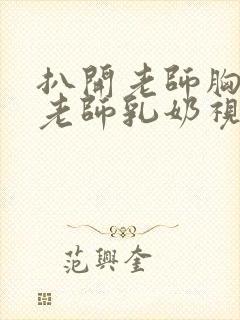 扒開老師胸
老師乳奶視
范興奎